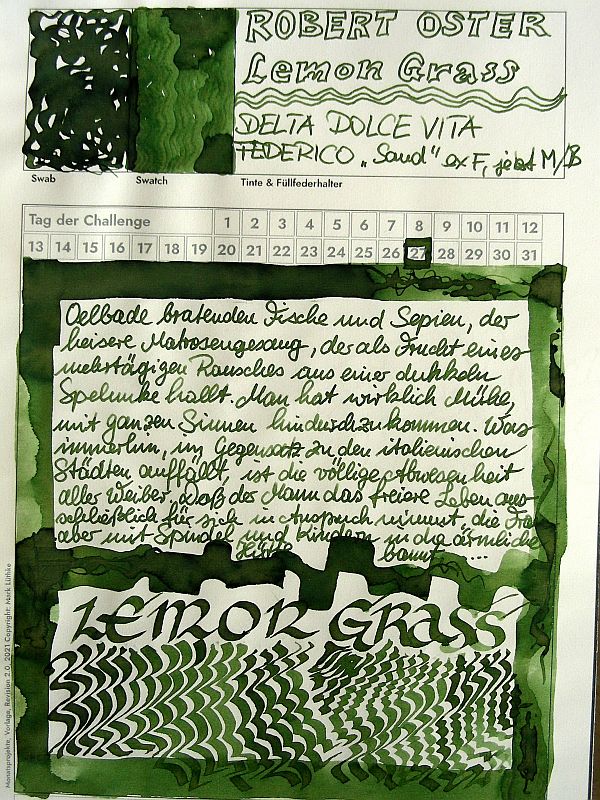 ROBERT OSTER
Lemon Grass
DELTA DOLCE VITA
FEDERICO „Sand“ ex F, jetzt M/B
Swab
Swatch
Tinte & Füllfederhalter
Tag der Challenge 1 2 3 4 5 6 7 8 9 10 11 12
13 14 15 16 17 18 19 20 21 22 23 24 25 26 27 28 29 30 31
Oelbade bratenden Fische und Sepien, der
heisere Matrosengesang, der als Frucht eines
mehrtägigen Rausches aus einer dunkeln
Spelunke hallt. Man hat wirklich Mühe,
mit ganzen Sinnen hindurchzukommen. Was
immerhin, im Gegensatz zu den italienischen
Städten auffällt, ist die völlige Abwesenheit
aller Weiber, daß der Mann das freiere Leben aus-
schließlich für sich in Anspruch nimmt, die Frau
aber mit Spindel und Kindern in die ärmliche
Hütte bannt ...
LEMON GRASS
Monatsprojekte, Vorlage, Revision 2.0, 2021 Copyright: Mark Lüthke